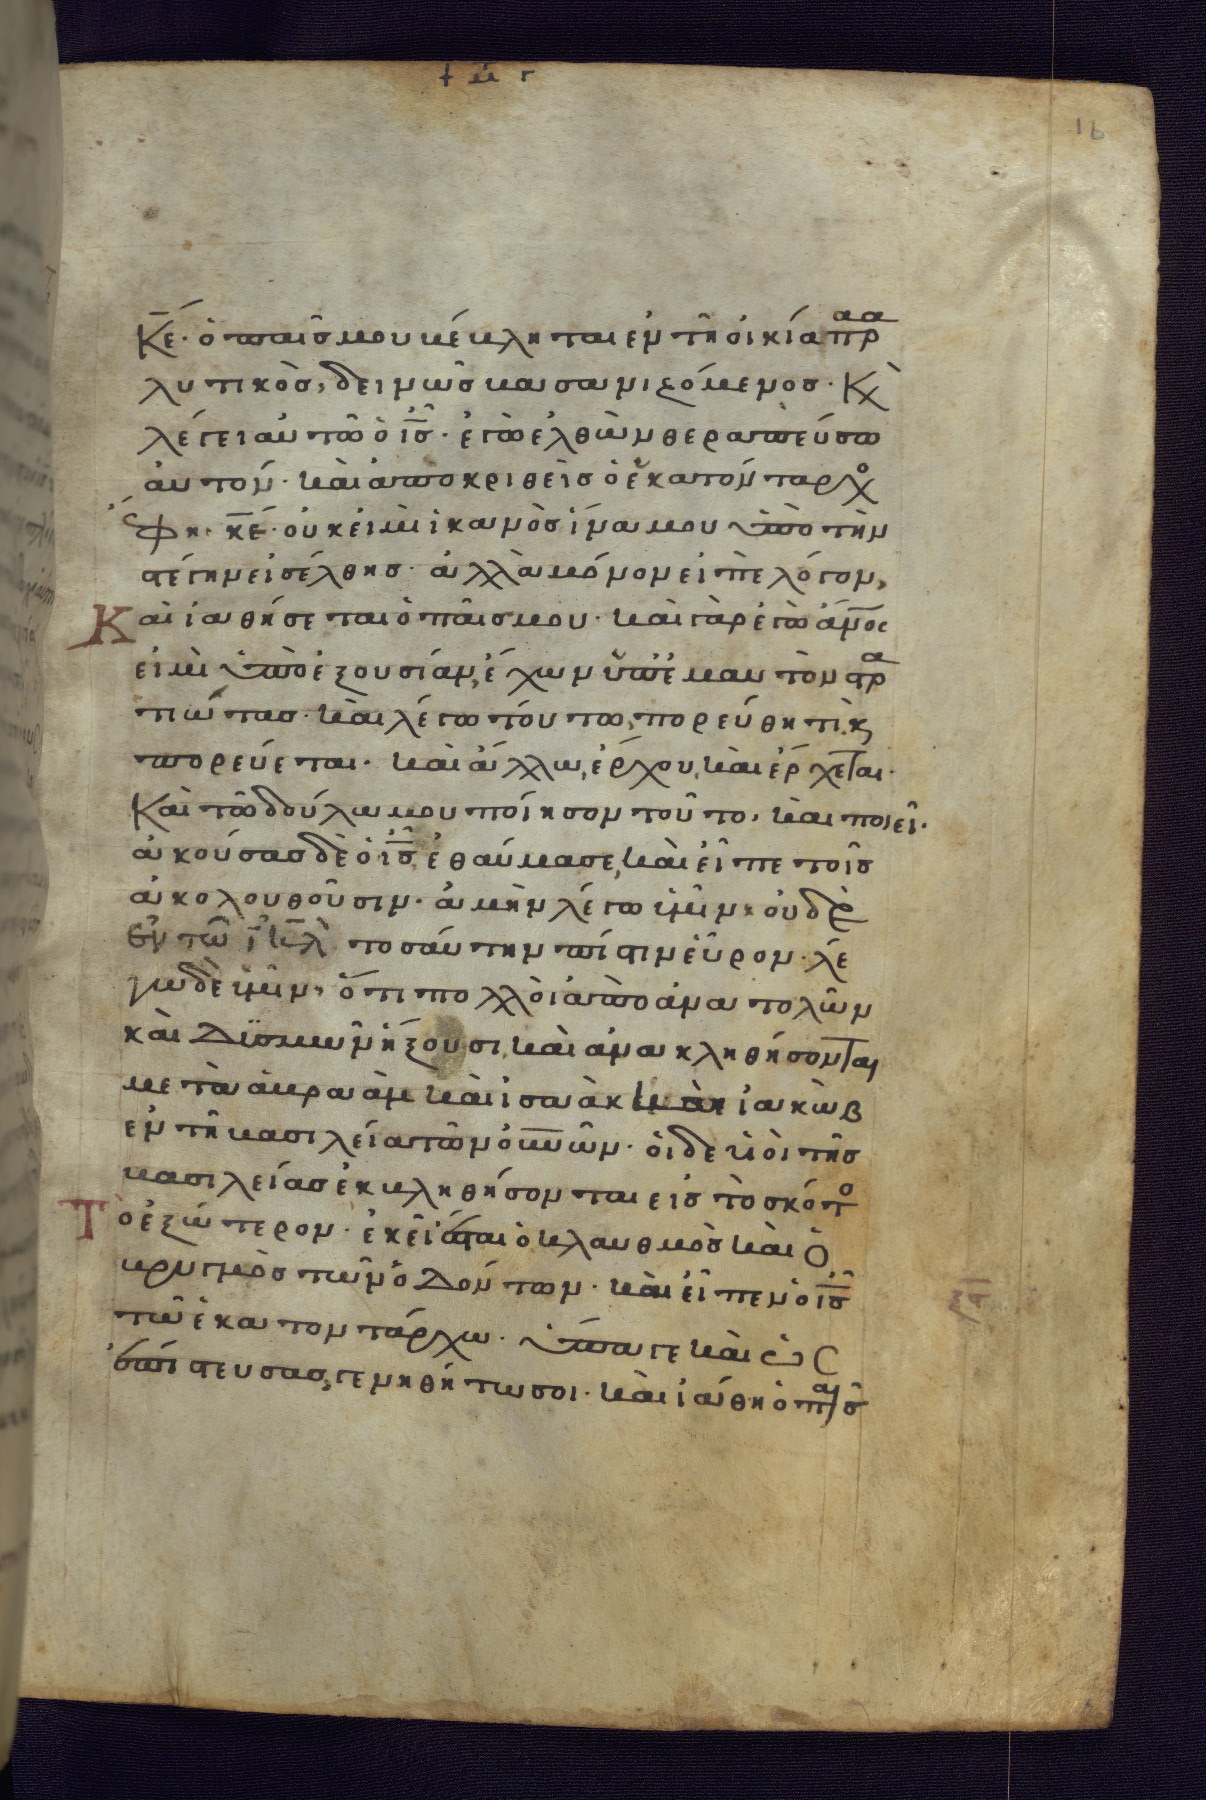 16
Κε̅. ὁ παῖς μου βέβληται ἐν τῆ οἰκία παρα
λυτικὸς, δεινῶς βασανιζόμενος. Κ(αὶ)
λέγει αὐτῶ ὁ ις̅. ἐγὼ ἐλθὼν θεραπεύσω
αὐτόν. καὶ ἀποκριθεὶς ὁ ἑκατόνταρχο
ἔφη. κε̅. οὐκ εἰμὶ ἱκανὸς ἵνα μου ὑπὸ τὴν
στέγην εἰσέλθης. ἀλλὰ μόνον εἰπὲ λόγον,
Καὶ ἰαθήσεται ὁ παῖς μου. καὶ γὰρ ἐγὼ ἄνος̅
εἰμὶ ὑπὸ ἐξουσίαν, ἔχων ὑπ' ἐμαυτὸν στρα
τιώτας. καὶ λέγω τούτω, πορεύθητι κ(αὶ)
πορεύεται. καὶ ἄλλω, ἔρχου, καὶ ἔρχεται.
Καὶ τῶ δούλω μου ποίησον τοῦτο, καὶ ποιεῖ.
ἀκούσας δὲ ὁ ις̅ ἐθαύμασε, καὶ εἶπε τοῖς
ἀκολουθοῦσιν. ἀμὴν λέγω ὑμῖν, οὐδὲ
ἐν τῶ ιη̅λ τοσαύτην πίστιν εὗρον. λέ
γω δὲ ὑμῖν, ὅτι πολλοὶ ἀπὸ ἀνατολῶν
καὶ δϋσμῶν ἥξουσι, καὶ ἀνακληθήσονται
μετὰ ἀβραὰμ καὶ ἰσαὰκ καὶ ἰακὼβ
ἐν τῆ βασιλεία τῶν οὐνῶν̅. οἱ δὲ υἱοὶ τῆς
βασιλείας ἐκβληθήσονται εἰς τὸ σκότο
Τὸ ἐξώτερον. ἐκεῖ ἔσται ὁ κλαυθμὸς καὶ ὁ
βρυγμὸς τῶν ὀδόντων. καὶ εἶπεν ὁ ις̅
τῶ ἑκατοντάρχω. ὕπαγε καὶ ὡς
ἐπίστευσας, γενηθήτω σοι. καὶ ἰάθη ὁ παῖς